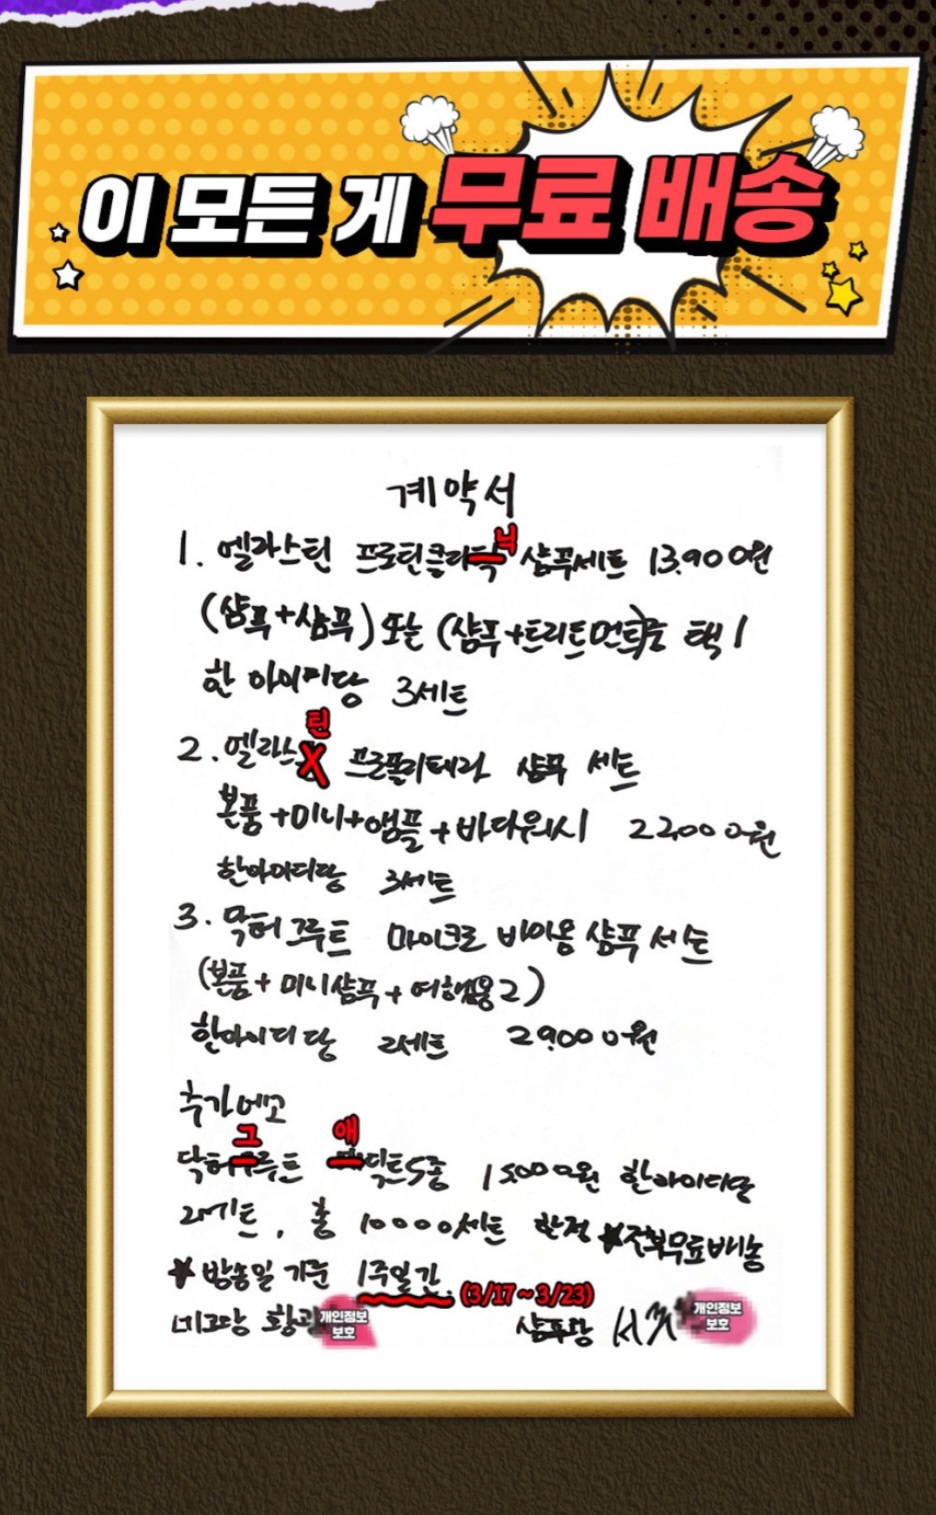 이 모든 게 무료 배송
계약서
1. 엘라스틴 프로틴클리닉 샴푸세트 13,900원
(샴푸+샴푸) 또는 (샴푸+트리트먼트) 중 택1
한 아이피당 3세트
2. 엘라스틴 프로폴리테라 샴푸 세트
본품+미니+앰플+바디워시 22,000원
한아이디당 3세트
3. 닥터그루트 마이크로 바이옴 샴푸 세트
(본품+미니샴푸+여행용2)
한아이디당 2세트 29,000원
추가
닥터그루트 애딕트5종 15,000원 한아이디당
2세트, 총 10000세트 한정 ★전부무료배송
★방송일 기준 1주일간 (3/17~3/23)
네고왕 황광 개인정보 보호 샴푸왕 개인정보 보호